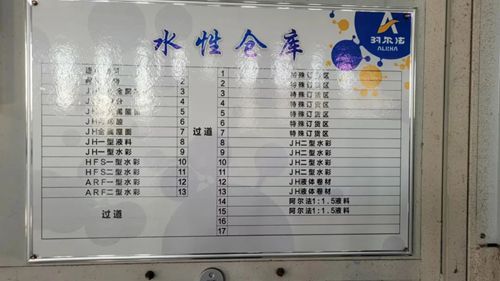 水性仓库
ALEHA
1 特殊订货区
2 2 特殊订货区
3 3 特殊订货区
4 4 特殊订货区
5 5 特殊订货区
6 6 特殊订货区
JH金属屋面 7 过道 7 特殊订货区
JH一型液料 8 8 JH二型水彩
JH一型水彩 9 9 JH二型水彩
HFS一型水彩 10 10 JH二型水彩
HFS二型水彩 11 11 JH二型水彩
ARF一型水彩 12 12 JH液体卷材
ARF二型水彩 13 13 JH液体卷材
14 阿尔法1:1.5液料
过道 15 阿尔法1:1.5液料
16
17